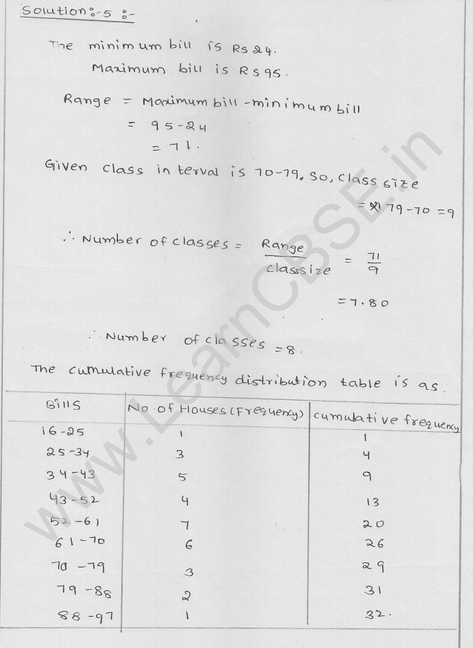 Solution:-5 :-
The minimum bill is Rs 24.
Maximum bill is Rs 95.
Range = Maximum bill - minimum bill
= 95-24
= 71.
Given class in terval is 70-79. So, class size
= 79-70 = 9
∴ Number of classes = Range / classsize = 71/9
= 7.80
∴ Number of classes = 8.
The cumulative frequency distribution table is as.
Bills No. of Houses (Frequency) cumulative frequency
16-25 1 1
25-34 3 4
34-43 5 9
43-52 4 13
52-61 7 20
61-70 6 26
70-79 3 29
79-88 2 31
88-97 1 32.
www.LearnCBSE.in